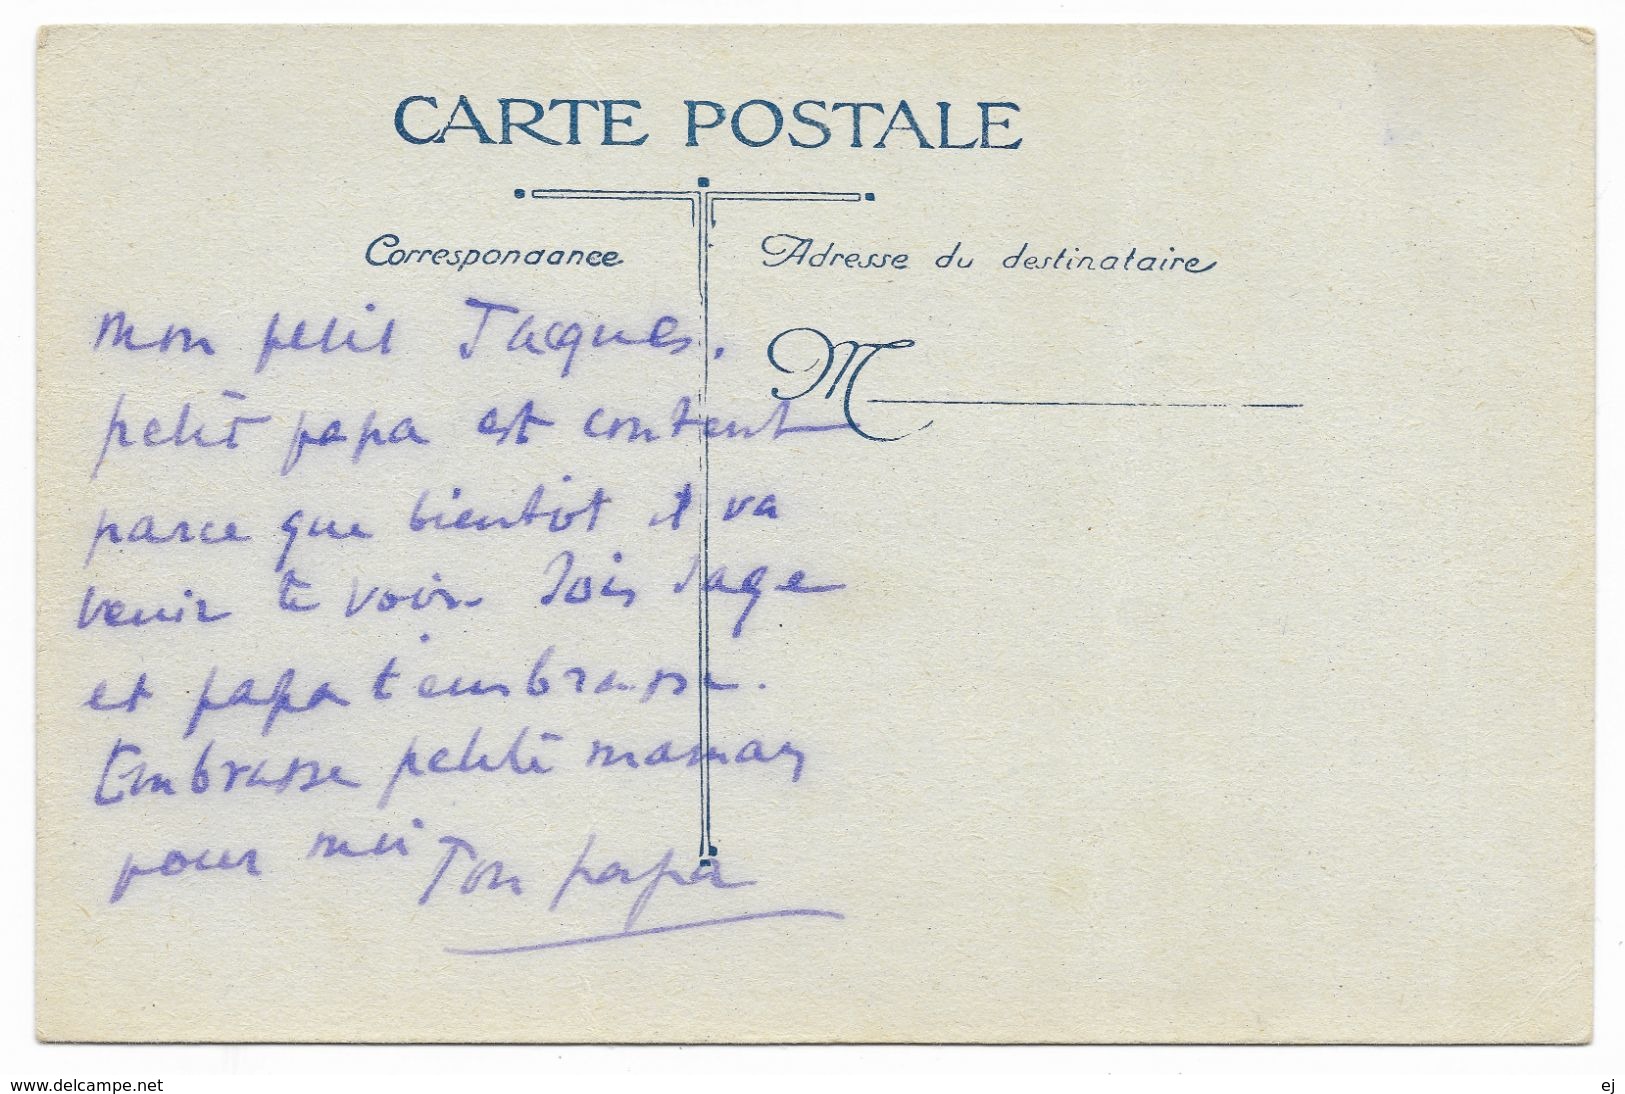 CARTE POSTALE
Correspondance
Adresse du destinataire
M
mon petit Jacques.
petit papa est content
parce que bientôt il va
venir te voir. Sois sage
et papa t'embrasse.
Embrasse petite maman
pour moi
Ton papa
www.delcampe.net
ej